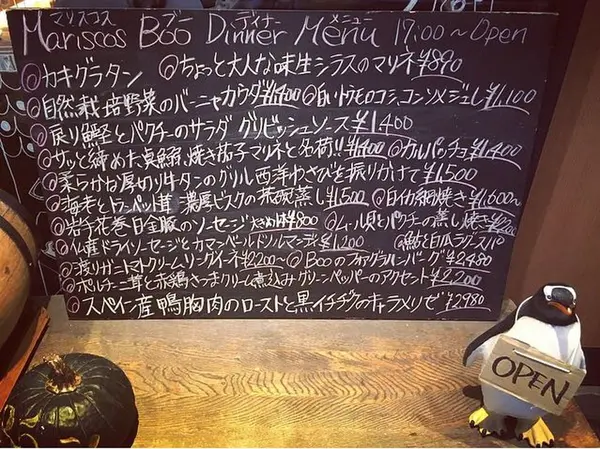 マリスコス ブー ディナー メニュー
Mariscos Boo Dinner Menu 17:00~Open
◎カキグラタン ◎ちょっと大人な味生シラスのマリネ¥890
◎自然栽培野菜のバーニャカウダ¥1,400 ◎白いトウモロコシ、コンソメジュレ¥1,100
◎戻り鰹とパクチーのサラダ グリビッシュソース¥1,400
◎サッと締めた真鯖、焼き茄子マリネと茗荷!!¥1,400 ◎カルパッチョ¥1,400
◎柔らかな厚切り牛タンのグリル西洋わさびを振りかけて¥1,500
◎海老とトランペット茸 濃厚ビスクの茶碗蒸し¥1,500 ◎白イカ網焼き¥1,600~
◎岩手花巻白金豚のソーセージ大きめ1本¥800 ◎ムール貝とパクチーの蒸し焼き
◎仏産ドライソーセージとカマンベールドノルマンディ¥1,200
◎渡りガニトマトクリームリングイネ¥2200~ ◎Booのフォアグラハンバーグ¥2480
◎ポルチーニ茸と赤鶏さつまクリーム煮込み グリーンペッパーのアクセント¥2,200
◎スペイン産鴨胸肉のローストと黒イチヂクのキャラメリゼ¥2980
OPEN